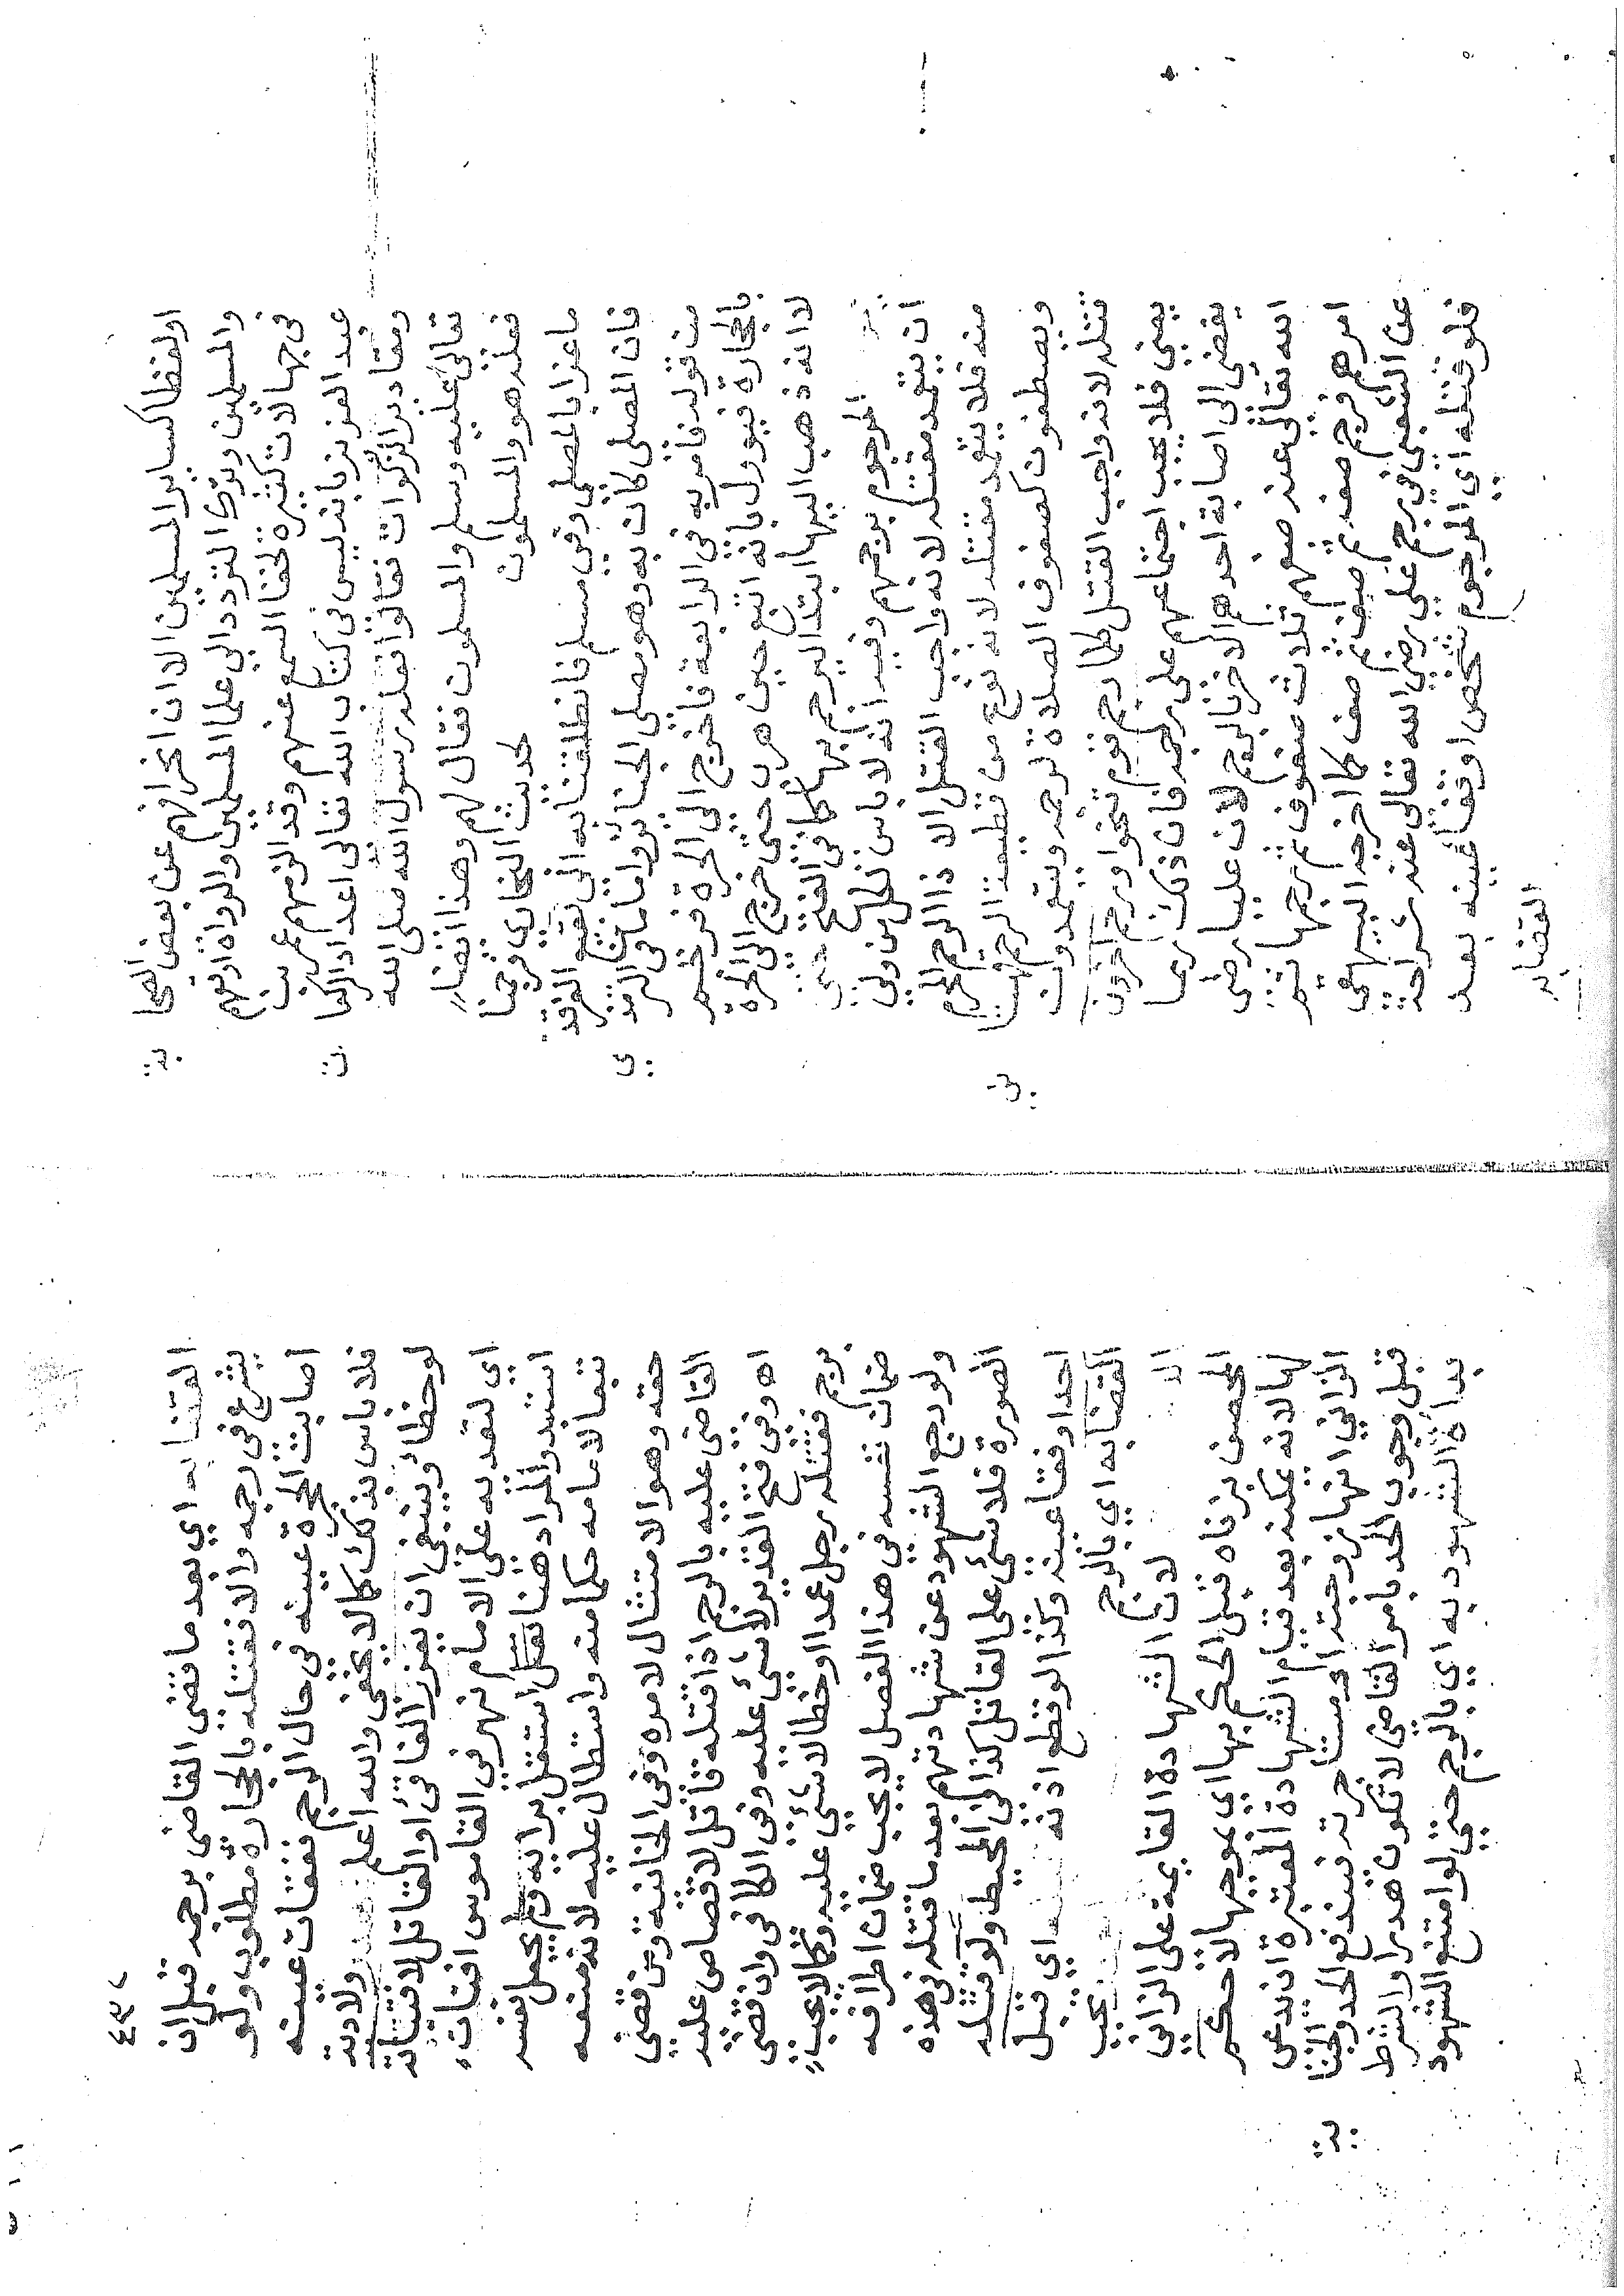 اولفظا كساير المسلمين الا ان انحرافهم عن بعض الصحا
والمسلمين وترك التردد الي علما المسلمين والرواة اوقعهم
في جهالات كثيرة لخفا السمع عنهم وقد الزمهم عمر بن
عبد العزيز بانه ليس في كتاب الله تعالى اعداد الركعا
ومقادير الزكوات فقالوا فعله رسول الله صلى الله
تعالى عليه وسلم والمسلمون فقال لهم وهذا ايضا
فعله هو والمسلمون لحديث البخاري فرجمنا
ماعزا بالمصلى وفي مسلم فانطلقنا به الى بقيع الغرقد
فان المصلى كان به وهو مصلى الجنايز واما ما في الترمذ
من قوله فامر به في الرابعة فاخرج الى الحرة فرجم
بالحجارة فيوول بانه اتبع حين هرب حتى خرج الى الحرة
لا انه ذهب اليها ابتدا ليرجم بها كما في الفتح
المرجوم يرجمهم وفيه انه لا باس لكل من رمى
ان يتعمد مقتله لانه واجب القتل الا ذا الرحم المحرم
منه فلا يتعمد مقتله لانه نوع من قطيعة الرحم
ويصطفون كصفوف الصلاة لرجمه ويتعمدون
قتله لانه واجب القتل كلما رجم قوم تنحوا ورجم اخرون
يعني فلا يجب اجتماعهم على رجمه فان ذلك ربما
يفضي الى اصابة احدهم الاخر بالرجم لان عليا رضى
الله تعالى عنه صفهم ثلاث صفوف ثم رجمها ثم
امرهم فرجم صف ثم صف ثم صف كما اخرجه البيهقى
عن الشعبي في رجم علي رضي الله تعالى عنه شراحة
فلو قتله اي المرجوم شخص او فقأ عينه بعد
القضا به
القضا به اي بعد ما قضى القاضى برجمه قبل ان
يشرع في رجمه والا فقتله بالحجارة مطلوب ولو
اصابت الحجرة عينه في حال الرجم ففقات عينه
فلا باس بذلك كما لا يخفى والله اعلم ولا دية
لو خطا وينبغي ان يعزر الفاقى او القاتل لافتياته
اي لتعديه على الامام نهر في القاموس افتات
استبد والمراد هنا استقل برايه ولم يجعل نفسه
تبعا لامامه حكامنه واستطال عليه لانه منعه
حقه وهو الامتثال لامره وفي الخانية ومن قضى
القاضى عليه بالرجم اذا قتله قاتل لا قصاص عليه
اه وفي فتح القدير لا شئ عليه وفي الكافي وان قضى
برجم فقتله رجل عمدا او خطا لا شئ عليه وكما لا يجب
ضمان نفسه في هذا الفصل لا يجب ضمان اطرافه
ولو رجع الشهود عن شهادتهم بعد ما قتله في هذه
الصورة فلا شئ على القاتل كذا في المحيط ولو قتله
احد او فقا عينه وكذا لو قطع اذنه اي قبل
القضا به اي بالرجم يجب
لان الشهادة القايمة على الزاني
المحصن بزناه قبل الحكم بها اي بموجبها لا حكم
لها لانه يمكنه بعد قيام الشهادة المعتبرة ان يدعى
الزاني انها زوجته او مستاجرته فيندفع الحد والجنا
قبل وجوب الحد بامر القاضي لا تكون هدرا والشرط
بداءة الشهود به اي بالرجم حتي لو امتنع الشهود